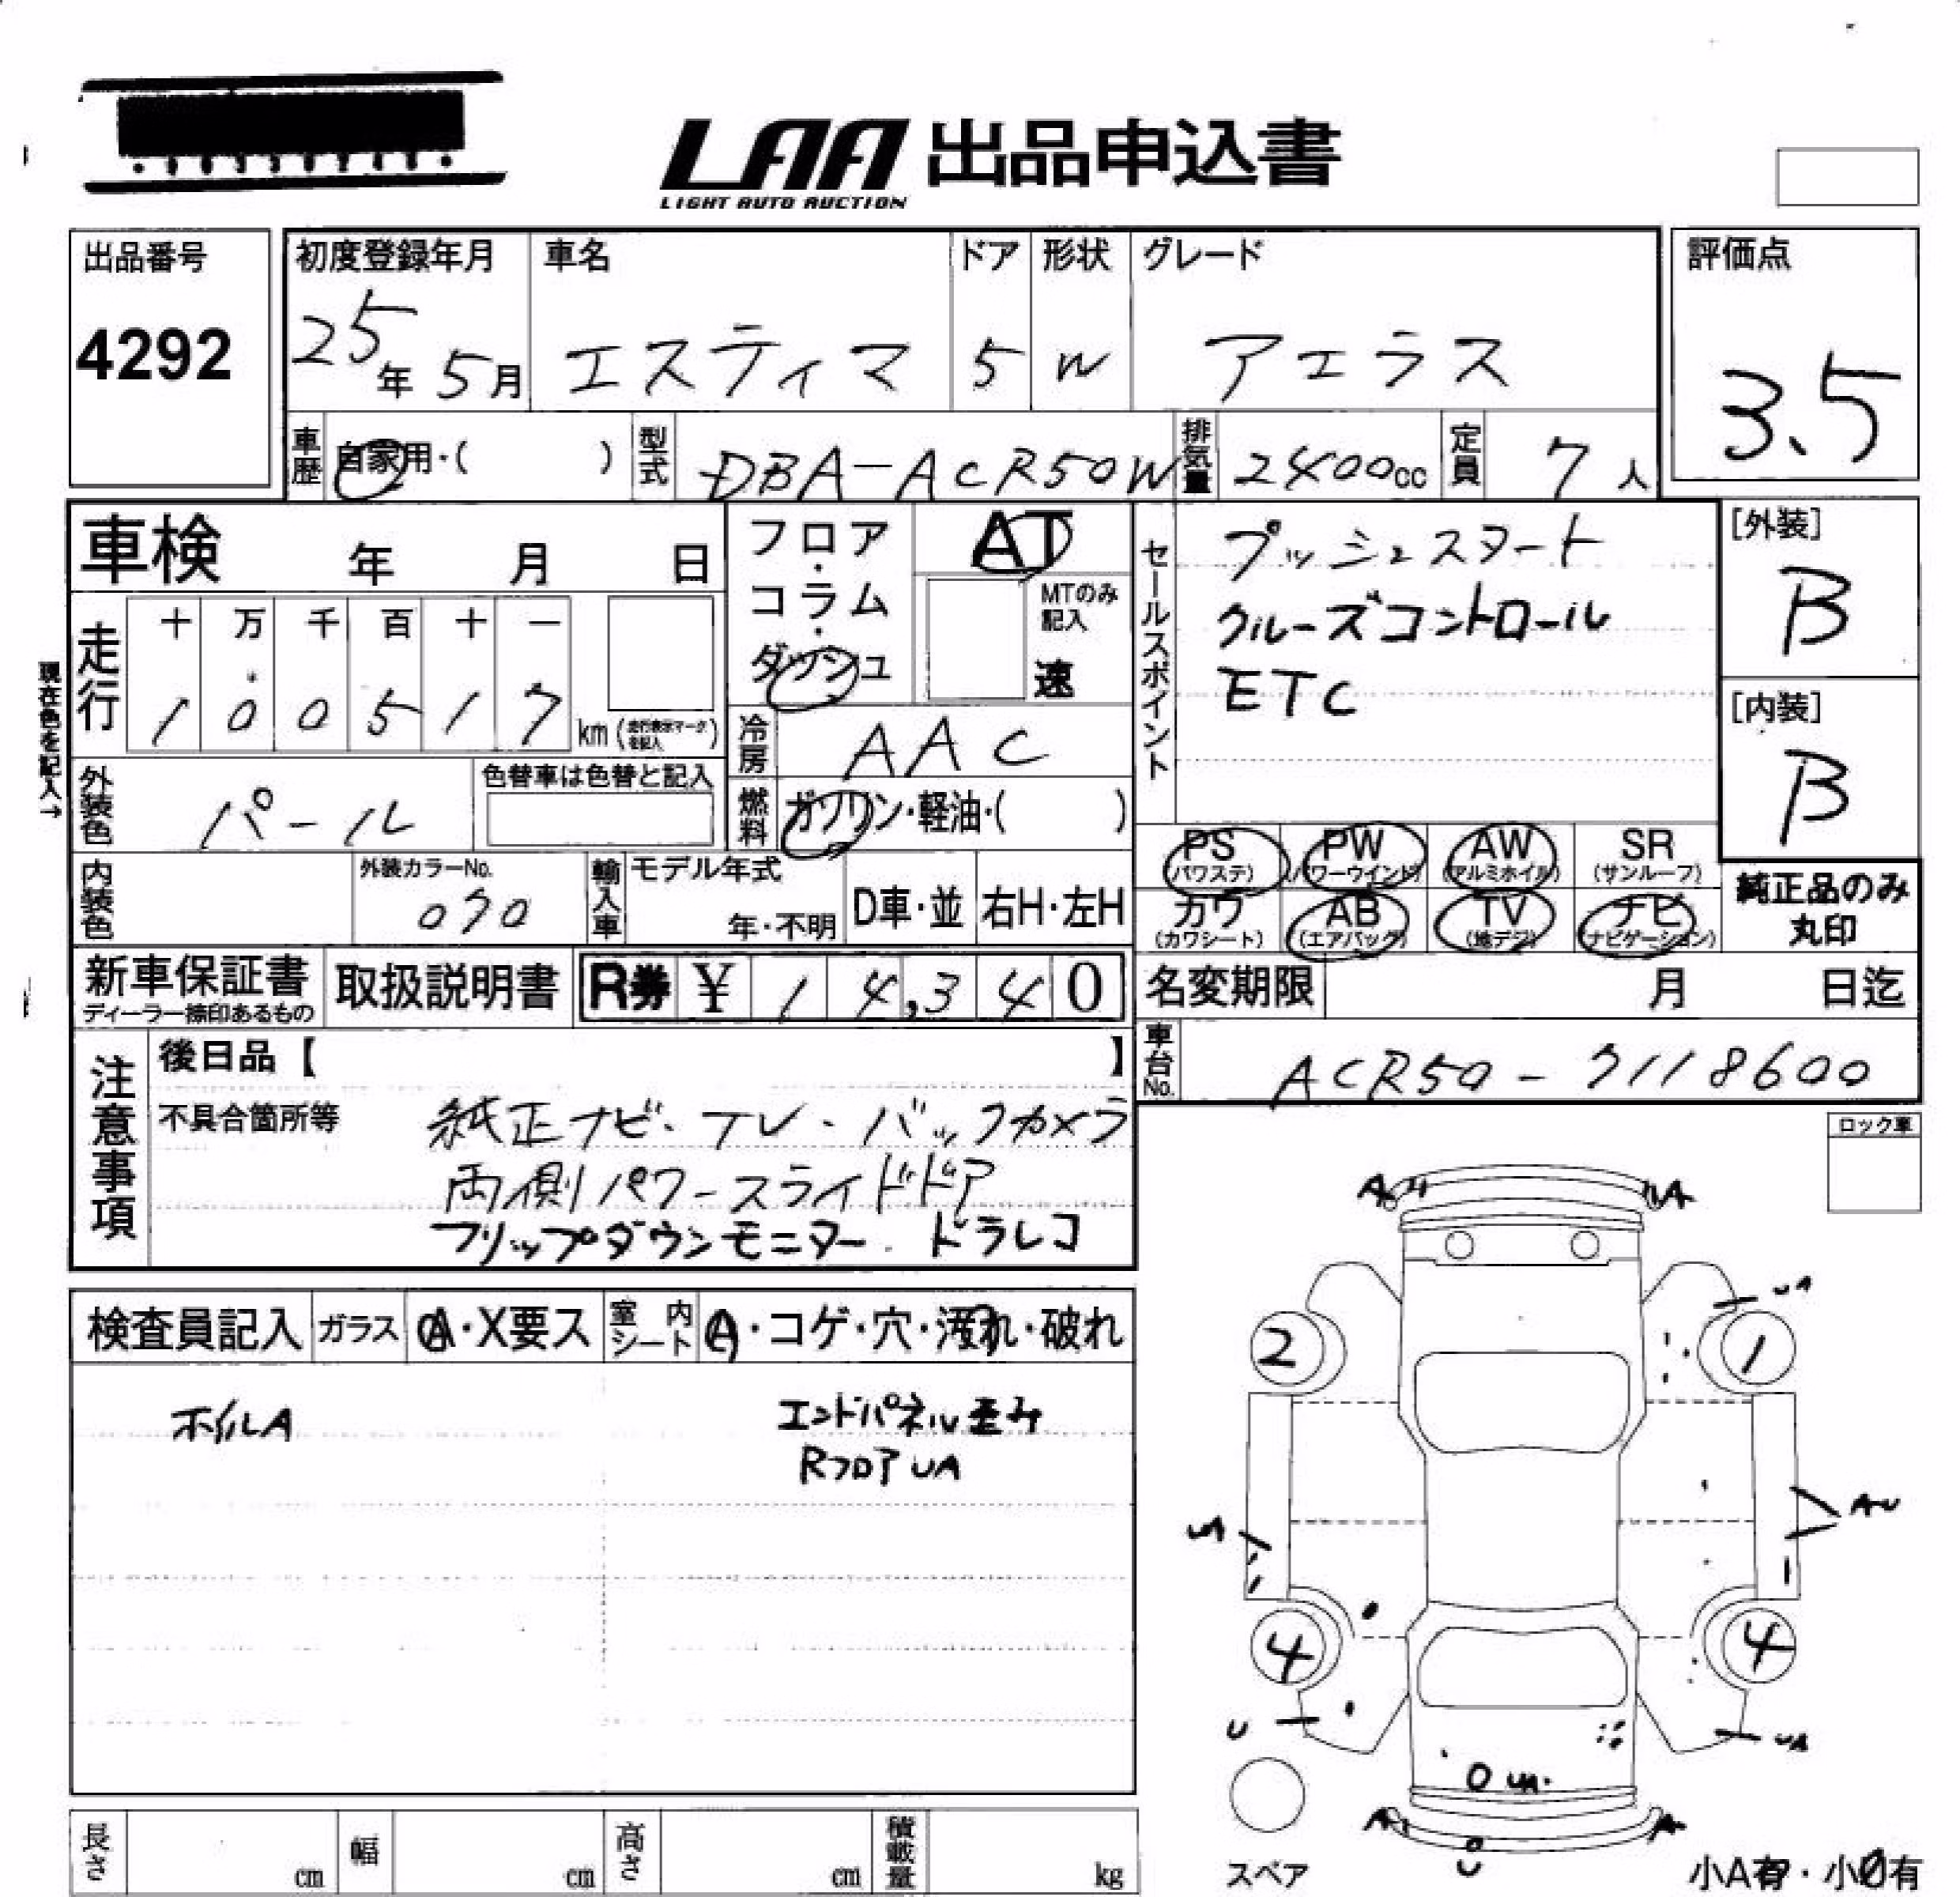 LAA 出品申込書
LIGHT AUTO AUCTION
出品番号
4292
初度登録年月
25年 5月
車名
エスティマ
ドア
5
形状
W
グレード
アエラス
評価点
3.5
車歴
自家用・( )
型式
DBA-ACR50W
排気量
2400cc
定員
7人
車検 年 月 日
フロア・コラム・ダッシュ
AT
MTのみ記入
速
セールスポイント
プッシュスタート
クルーズコントロール
ETC
[外装]
B
[内装]
B
現在色を記入→
走行
十 万 千 百 十 一
1 0 0 5 1 7
km (走行表示マークを記入)
冷房
AAC
外装色
パール
色替車は色替と記入
燃料
ガソリン・軽油・( )
PS (パワステ)
PW (パワーウインド)
AW (アルミホイル)
SR (サンルーフ)
カワ (カワシート)
AB (エアバック)
TV (地デジ)
ナビ (ナビゲーション)
純正品のみ
丸印
内装色
外装カラーNo.
070
輸入車
モデル年式
年・不明
D車・並
右H・左H
新車保証書
ディーラー捺印あるもの
取扱説明書
R券 ¥ 14,340
名変期限 月 日迄
車台No.
ACR50-7118600
注意事項
後日品【 】
不具合箇所等
純正ナビ・TV・バックカメラ
両側パワースライドドア
フリップダウンモニター ドラレコ
ロック車
検査員記入
ガラス
A・X要ス
室内シート
A・コゲ・穴・汚れ・破れ
ホイルA
エンドパネル歪み
RフロアUA
A
A
UA
2
1
UA
AU
4
4
U
UA
UA
A
A
U
スペア
小A有・小U有
長さ cm
幅 cm
高さ cm
積載量 kg